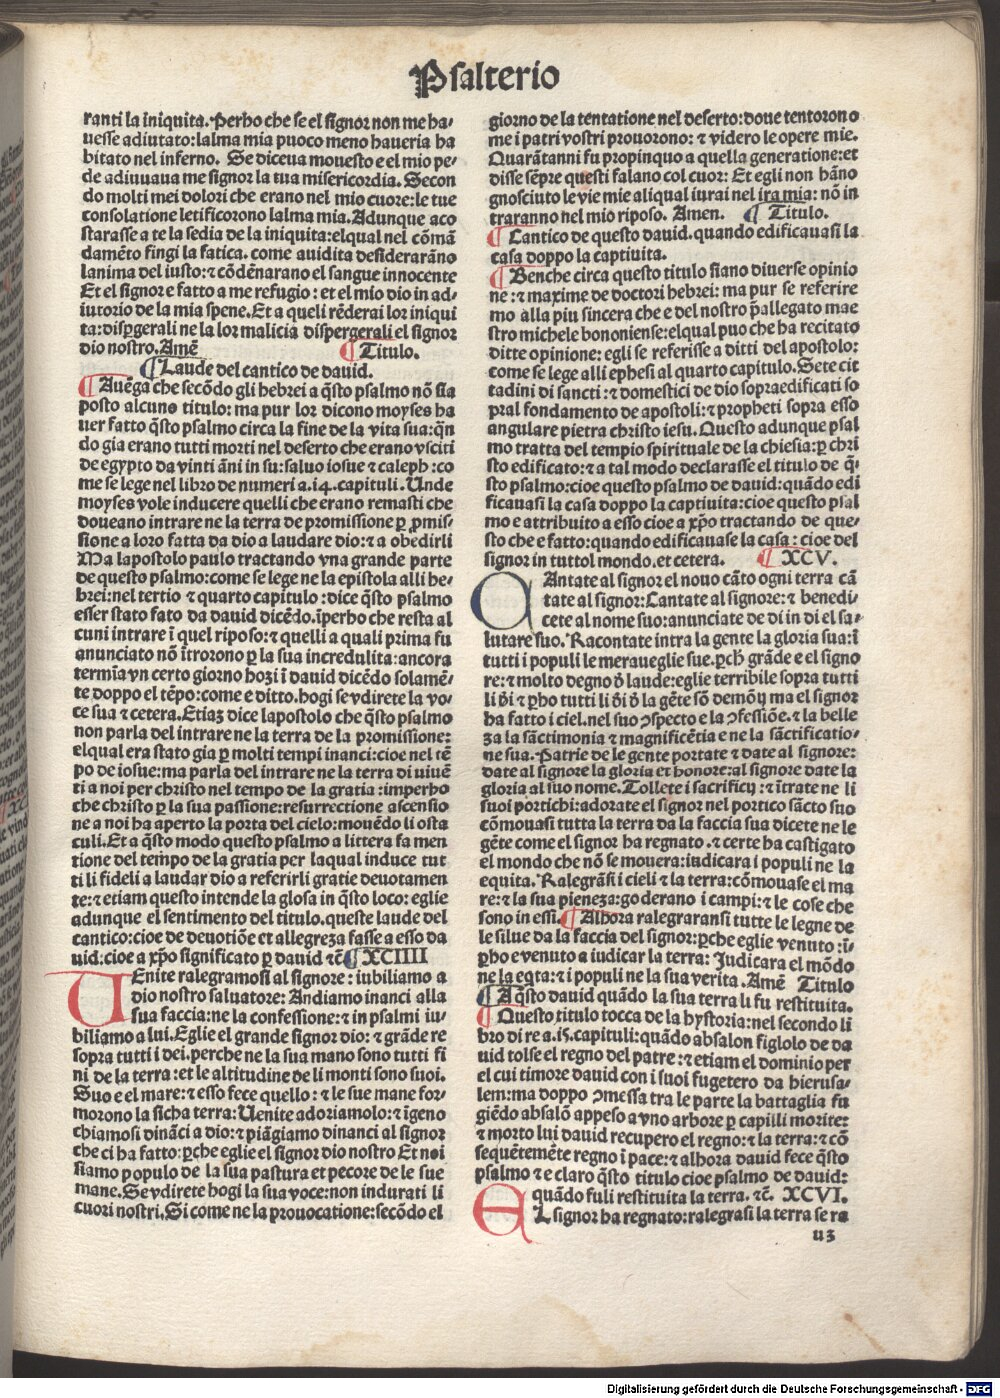 Psalterio
ranti la iniquita. Perho che se el signor non me ha-
uesse adiutato: lalma mia puoco meno haueria ha
bitato nel inferno. Se diceua mouesto e el mio pe-
de adiuuaua me signor la tua misericordia. Secon
do molti mei dolori che erano nel mio cuore: le tue
consolatione letificorono lalma mia. Adunque aco
starasse a te la sedia de la iniquita: elqual nel cōmā
damēto fingi la fatica. come auidita desideraraňo
lanima del iusto: ⁊ cōdēnarano el sangue innocente
Et el signor e fatto a me refugio: et el mio dio in ad-
iutorio de la mia spene. Et a queli rēderai lor iniqui
ta: disꝑgerali ne la lor malicia dispergerali el signor
dio nostro. Amē ¶ Titulo.
¶ Laude del cantico de dauid.
¶ Auēga che secōdo gli hebrei a q̄sto psalmo nō sia
posto alcuno titulo: ma pur lor dicono moyses ha
uer fatto q̄sto psalmo circa la fine de la vita sua: q̄n
do gia erano tutti morti nel deserto che erano vsciti
de egypto da vinti āni in su: saluo iosue ⁊ caleph: co
me se lege nel libro de numeri a.14. capituli. Unde
moyses vole inducere quelli che erano remasti che
doueano intrare ne la terra de promissione ꝑ ꝓmis-
sione a loro fatta da dio a laudare dio: ⁊ a obedirli
Ma lapostolo paulo tractando vna grande parte
de questo psalmo: come se lege ne la epistola alli he-
brei: nel tertio ⁊ quarto capitulo: dice q̄sto psalmo
esser stato fato da dauid dicēdo. īperho che resta al
cuni intrare ī quel riposo: ⁊ quelli a quali prima fu
anunciato nō ītrorono ꝑ la sua incredulita: ancora
termīa vn certo giorno hozi ī dauid dicēdo solamē-
te doppo el tēpo: come e ditto. hogi se vdirete la vo-
ce sua ⁊ cetera. Etiaz dice lapostolo che q̄sto psalmo
non parla del intrare ne la terra de la promissione:
elqual era stato gia ꝑ molti tempi inanci: cioe nel tē
po de iosue: ma parla del intrare ne la terra di viuē
ti a noi per christo nel tempo de la gratia: imperho
che christo ꝑ la sua passione: resurrectione ascensio
ne a noi ha aperto la porta del cielo: mouēdo li osta
culi. Et a q̄sto modo questo psalmo a littera fa men
tione del tempo de la gratia per laqual induce tut
ti li fideli a laudar dio a referirli gratie deuotamen
te: ⁊ etiam questo intende la glosa in q̄sto loco: eglie
adunque el sentimento del titulo. queste laude del
cantico: cioe de deuotiōe et allegreza fasse a esso da
uid: cioe a xp̄o significato ꝑ dauid ⁊c̄ ¶ XCIIII
UEnite ralegramosi al signore: iubiliamo a
dio nostro saluatore: Andiamo inanci alla
sua faccia: ne la confessione: ⁊ in psalmi iu-
biliamo a lui. Eglie el grande signor dio: ⁊ grāde re
sopra tutti i dei. perche ne la sua mano sono tutti fi
ni de la terra: et le altitudine de li monti sono suoi.
Suo e el mare: ⁊ esso fece quello: ⁊ le sue mane for-
morono la sicha terra: Uenite adoriamolo: ⁊ igeno
chiamosi dināci a dio: ⁊ piāgiamo dinanci al signor
che ci ha fatto: ꝑche eglie el signor dio nostro Et noi
siamo populo de la sua pastura et pecore de le sue
mane. Se vdirete hogi la sua voce: non indurati li
cuori nostri. Si come ne la prouocatione: secōdo el
giorno de la tentatione nel deserto: doue tentorono
me i patri vostri prouorono: ⁊ videro le opere mie.
Quarātanni fu propinquo a quella generatione: et
disse sēpre questi falano col cuor: Et egli non hāno
gnosciuto le vie mie al iqual iurai nel ira mia: nō in
traranno nel mio riposo. Amen. ¶ Titulo.
¶ Cantico de questo dauid. quando edificauasi la
casa doppo la captiuita.
¶ Benche circa questo titulo siano diuerse opinio
ne: ⁊ maxime de doctori hebrei: ma pur se referire
mo alla piu sincera che e del nostro p̄allegato mae
stro michele bononiense: elqual puo che ha recitato
ditte opinione: egli se referisse a ditti del apostolo:
come se lege alli ephesi al quarto capitulo. Sete cit
tadini di sancti: ⁊ domestici de dio sopraedificati so
pral fondamento de apostoli: ⁊ propheti sopra esso
angulare pietra christo iesu. Questo adunque psal
mo tratta del tempio spirituale de la chiesia: ꝑ chri
sto edificato: ⁊ a tal modo declarasse el titulo de q̄-
sto psalmo: cioe questo psalmo de dauid: quādo edi
ficauasi la casa doppo la captiuita: cioe questo psal
mo e attribuito a esso cioe a xp̄o tractando de que-
sto che e fatto: quando edificauase la casa: cioe del
signor in tuttol mondo. et cetera. ¶ XCV.
CAntate al signor el nouo cāto ogni terra cā
tate al signor: Cantate al signore: ⁊ benedi-
cete al nome suo: anunciate de di in di el sa-
lutare suo. Racontate intra la gente la gloria sua: ī
tutti i populi le meraueglie sue. ꝑch grāde e el signo
re: ⁊ molto degno d̄ laude: eglie terribile sopra tutti
li d̄i ⁊ ꝑho tutti li d̄i d̄ la gēte sō demōij ma el signor
ha fatto i ciel. nel suo ɔspecto e la ɔfessiōe. ⁊ la belle
za la sāctimonia ⁊ magnificētia e ne la sāctificatio-
ne sua. Patrie de le gente portate ⁊ date al signore:
date al signore la gloria et honore: al signore date la
gloria al suo nome. Tollete i sacrificij: ⁊ ītrate ne li
suoi portichi: adorate el signor nel portico sācto suo
cōmouasi tutta la terra da la faccia sua dicete ne le
gēte come el signor ha regnato. ⁊ certe ha castigato
el mondo che nō se mouera: iudicara i populi ne la
equita. Ralegrāsi i cieli ⁊ la terra: cōmouase el ma
re: ⁊ la sua pieneza: goderano i campi: ⁊ le cose che
sono in essi. ¶ Alhora ralegraransi tutte le legne de
le silue da la faccia del signor: ꝑche eglie venuto: ī-
ꝑho e venuto a iudicar la terra: Judicara el mōdo
ne la eqta: ⁊ i populi ne la sua verita. Amē Titulo
¶ A q̄sto dauid quādo la sua terra li fu restituita.
¶ Questo titulo tocca de la hystoria: nel secondo li
bro di re a.15. capituli: quādo absalon figlolo de da
uid tolse el regno del patre: ⁊ etiam el dominio per
el cui timore dauid con i suoi fugetero da hierusa-
lem: ma doppo ɔmessa tra le parte la battaglia fu
giēdo absalō appeso a vno arbore ꝑ capilli morite:
⁊ morto lui dauid recupero el regno: ⁊ la terra: ⁊ cō
sequētemēte regno ī pace: ⁊ alhora dauid fece q̄sto
psalmo ⁊ e claro q̄sto titulo cioe psalmo de dauid:
quādo fuli restituita la terra. ⁊c̄. XCVI.
EL signor ha regnato: ralegrasi la terra se ra
u3
Digitalisierung gefördert durch die Deutsche Forschungsgemeinschaft - DFG